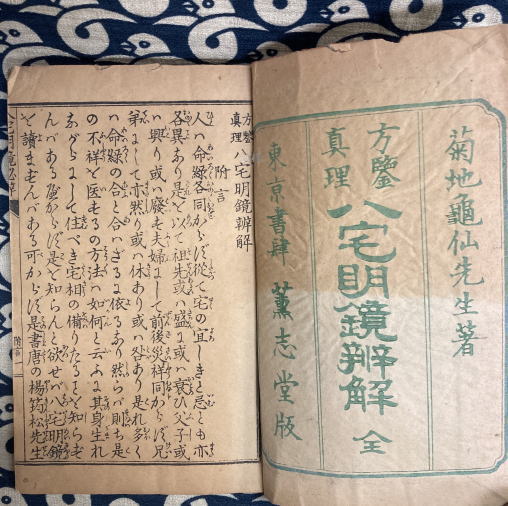 菊地龜仙先生著
方鑒
真理
八宅明鏡辨解 全
東京書肆 薫志堂版
方鑒
真理
八宅明鏡辨解
附言
人ハ命緑各同からず從て宅の宜しきと忌とも亦
各異あり是と以て祖先或ハ盛に或ハ衰ひ父子或
ハ興り或ハ廢も夫婦にして前後災祥同からず兄
弟にして亦然り或ハ休あり或ハ咎あり是れ多く
ハ命緑の合と合ハざるに依るあり然らバ則ち是
の不祥と医もるの方法ハ如何と云ふに其身生れ
ながらにして住べき宅相の備りたるを知らむ
んバある可からず是と知らんと欲せバ八宅明鏡
と讀まむんバある可からず是書唐の楊筠松先生